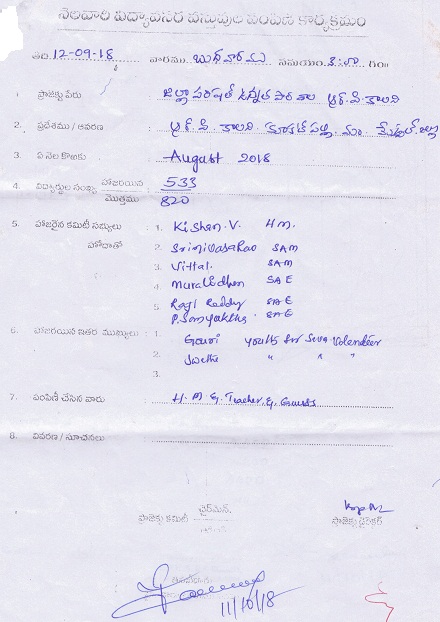 నెలవారి విద్యావసర వస్తువుల పంపిణి కార్యక్రమం
తేది 12-09-18 వారము బుధవారము సమయం 3:00 గం
1. ప్రాజెక్టు పేరు : జిల్లా పరిషత్ ఉన్నత పాఠశాల ఆర్.పి. కాలని
2. ప్రదేశము / ఆవరణ : ఆర్.పి. కాలని. కూకట్ పల్లి. మం. మేడ్చల్. జిల్లా
3. ఏ నెల కొఱకు : August 2018
4. విద్యార్థుల సంఖ్య హాజరయిన : 533
మొత్తము 820
5. హాజరైన కమిటీ సభ్యులు : 1. Kishan. V. H.M.
హోదాతో 2. Srinivasa Rao SAM
3. Vittal. SAM
4. Muralidhar SAE
5. Ragi Reddy SAE
SAE
6. హాజరయిన ఇతర ముఖ్యులు : 1. Gouri Youth for Seva Volenteer
2. Swetha " " "
3.
7. పంపిణీ చేసిన వారు : H.M & Teacher, & Guests
8. వివరణ / సూచనలు :
చైర్మెన్,
ప్రాజెక్టు కమిటీ
ప్రాజెక్టు డైరెక్టర్
11/10/18